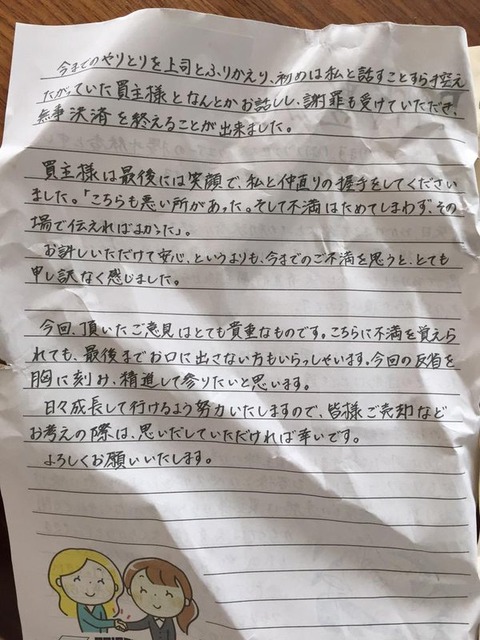 今までのやりとりを上司とふりかえり、初めは私と話すことすら控え
たがっていた買主様となんとかお話しし、謝罪も受けていただき、
無事決済を終えることが出来ました。
買主様は最後には笑顔で、私と仲直りの握手をしてください
ました。「こちらも悪い所があった。そして不満はためてしまわず、その
場で伝えればよかった」。
お許しいただけて安心、というよりも、今までのご不満を思うと、とても
申し訳なく感じました。
今回、頂いたご意見はとても貴重なものです。こちらに不満を覚えら
れても、最後までお口に出さない方もいらっしゃいます。今回の反省を
胸に刻み、精進して参りたいと思います。
日々成長して行けるよう努力いたしますので、皆様ご売却など
お考えの際は、思いだしていただければ幸いです。
よろしくお願いいたします。